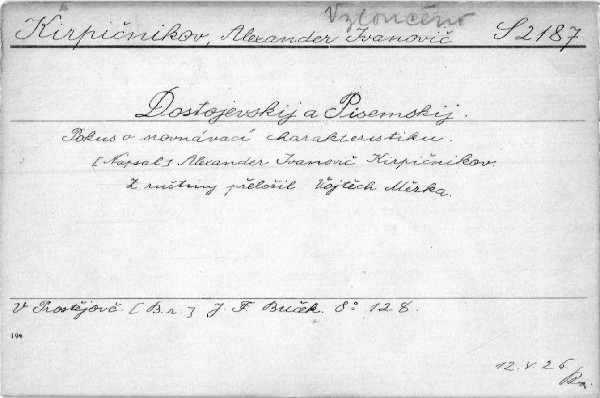 Vzloučeno
Kirpičnikov, Alexander Ivanovič S 2187
Dostojevskij a Pisemskij.
Pokus o rovnávací charakteristiku.
[Napsal] Alexander Ivanovič Kirpičnikov.
Z ruštiny přeložil Vojtěch Měrka.
V Prostějově. [B. r.] J. F. Buček. 8° 128.
194
12. V. 26